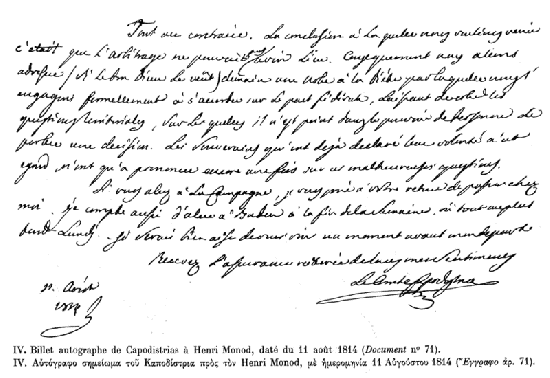 Tout au contraire. La conclusion à laquelle nous voulions venir
c'était que l'arbitrage ne pouvait avoir lieu. Conséquemment nous allons
adresser (si le bon Dieu le veut) demain une note à la Diète par laquelle nous l'
engageons formellement à s'entendre sur le pact fédéral, laissant de côté les
questions territoriales, sur lesquelles il n'est point dans le pouvoir de personne de
porter une décision. Les Souverains qui ont déjà déclaré leur volonté à cet
égard, n'ont qu'à prononcer encore une fois sur ces malheureuses questions.
Si vous allez à la Campagne, je vous prie à votre retour de passer chez
moi. Je compte aussi d'aller à Baden à la fin de la semaine, ou tout au plus
tard Lundi. Je serai bien aise de vous voir un moment avant mon départ.
Recevez l'assurance réitérée de tous mes sentiments
Le Comte Capodistrias
11 Août
1814
IV. Billet autographe de Capodistrias à Henri Monod, daté du 11 août 1814 (Document nº 71).
IV. Αὐτόγραφο σημείωμα τοῦ Καποδίστρια πρὸς τὸν Henri Monod, μὲ ἡμερομηνία 11 Αὐγούστου 1814 (Ἔγγραφο ἀρ. 71).